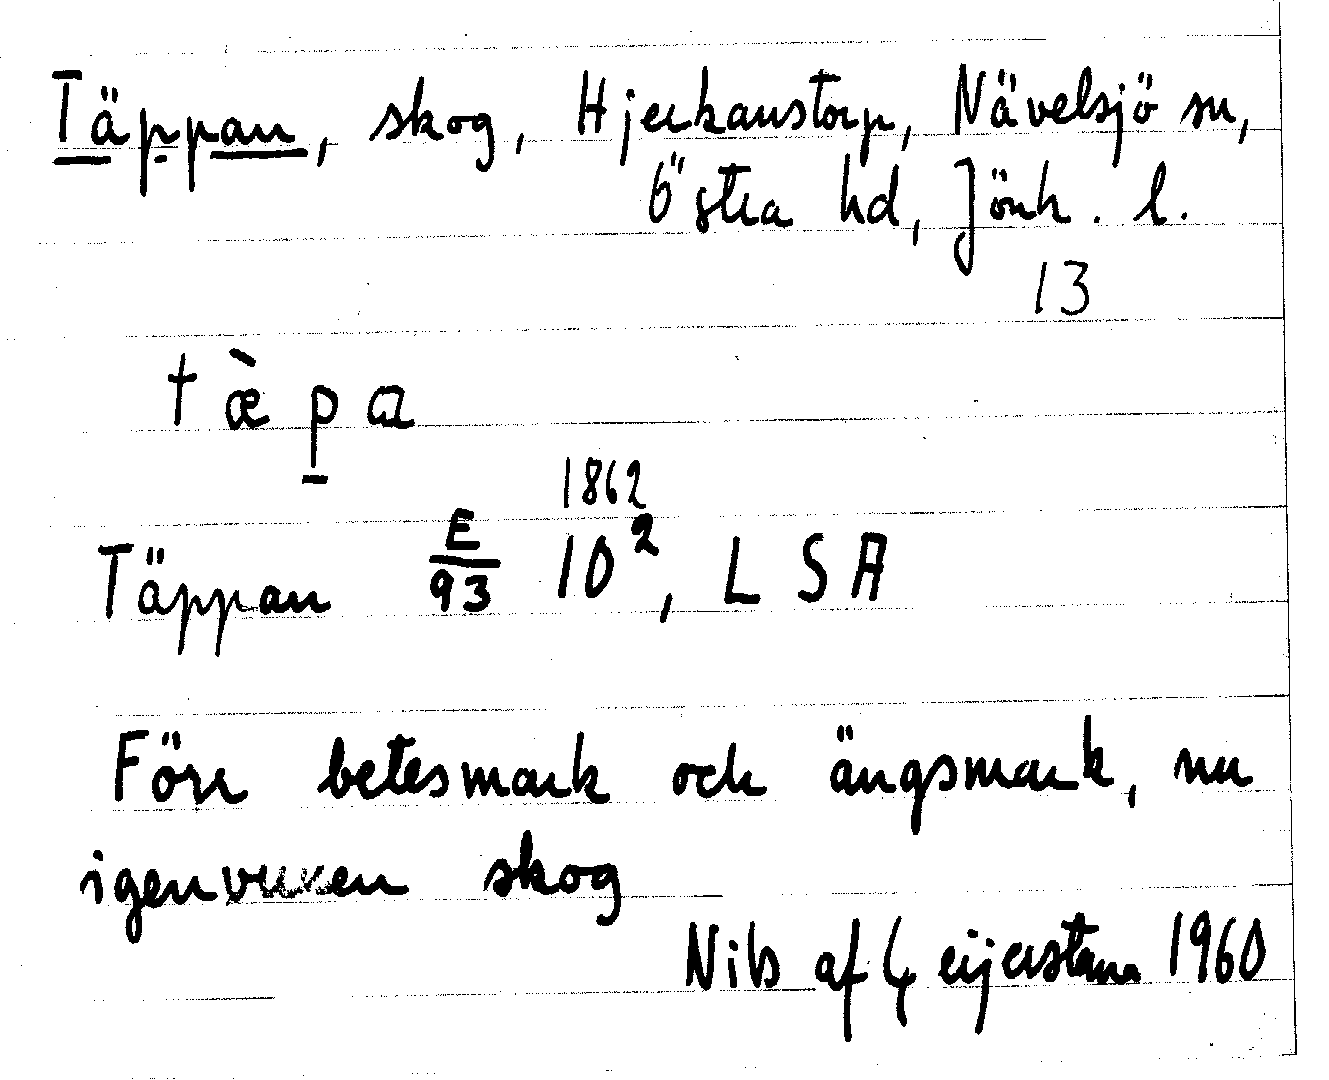 Täppan, skog, Hjerkanstorp, Nävelsjö sn,
Östra hd, Jönk. l.
13
tæ̀p̠a
1862
Täppan E/93 10², LSA
Förr betesmark och ängsmark, nu
igenvuxen skog
Nils af Geijerstam 1960